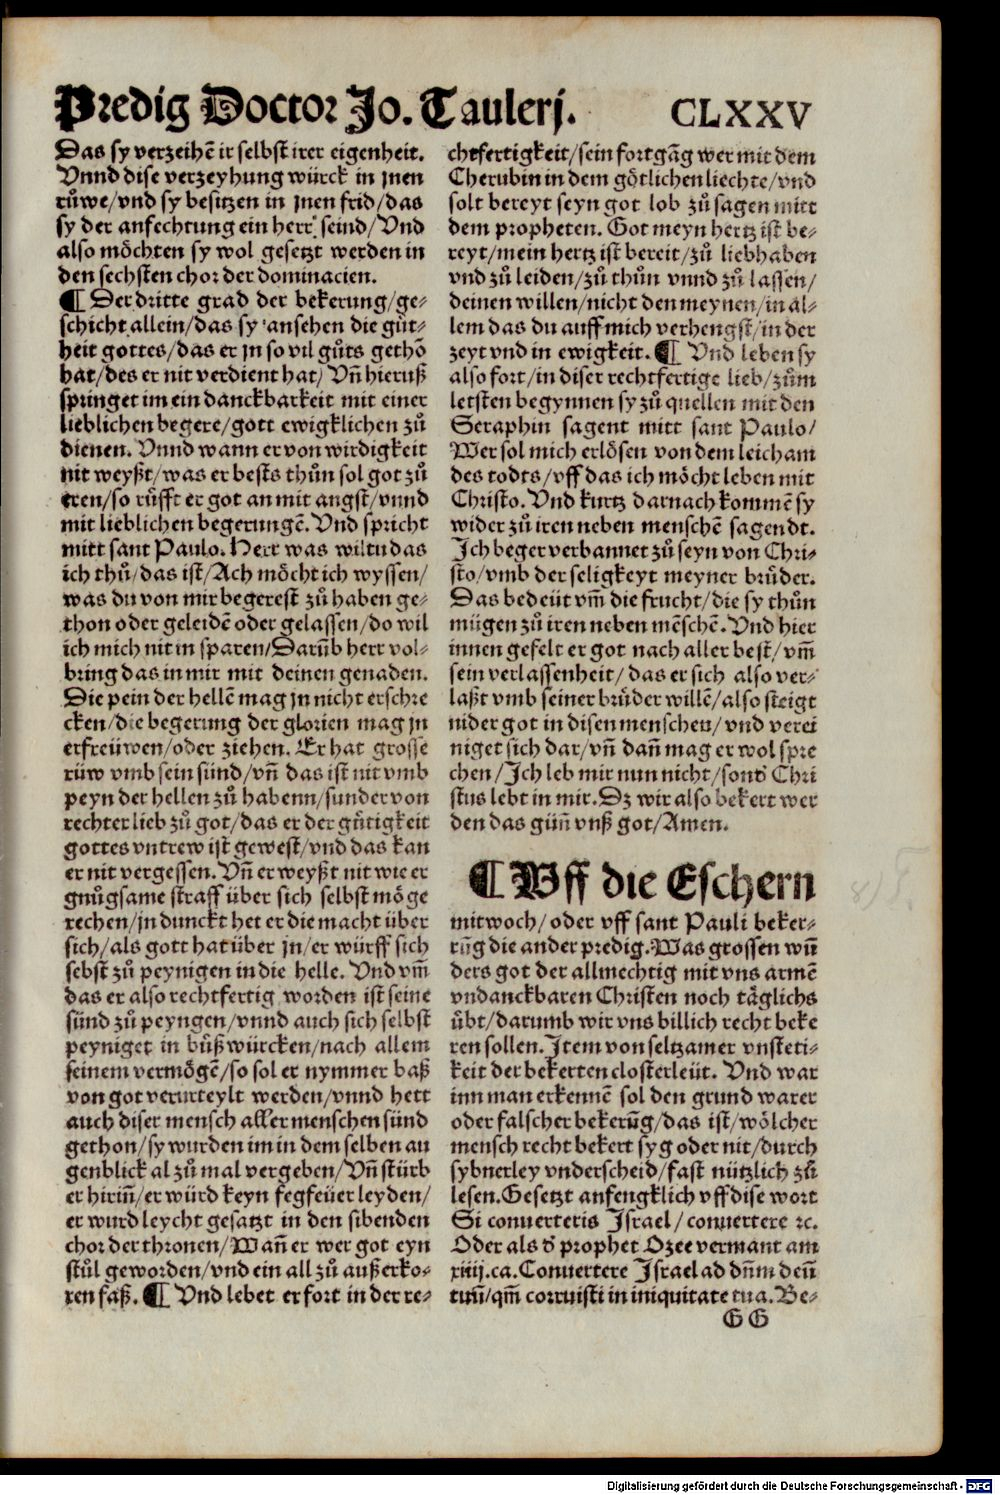 Predig Doctor Jo. Taulerj. CLXXV
Das sy verzeihē ir selbst irer eigenheit.
Vnnd dise verzeyhung würck in jnen
růwe/vnd sy besitzen in jnen frid/das
sy der anfechtung ein herr seind/Vnd
also möchten sy wol gesetzt werden in
den sechsten chor der dominacien.
¶ Der dritte grad der bekerung/ge⸗
schicht allein/das sy ansehen die gůt⸗
heit gottes/das er jn so vil gůts gethō
hat/des er nit verdient hat/Vn̄ hieruß
springet im ein danckbarkeit mit einer
lieblichen begere/gott ewigklichen zů
dienen. Vnnd wann er von wirdigkeit
nit weyßt/was er bests thůn sol got zů
eren/so růfft er got an mit angst/vnnd
mit lieblichen begerungē. Vnd spricht
mitt sant Paulo. Herr was wiltu das
ich thů/das ist/Ach möcht ich wyssen/
was du von mir begerest zů haben ge⸗
thon oder geleidē oder gelassen/do wil
ich mich nit in sparen/Darūb herr vol⸗
bring das in mir mit deinen genaden.
Die pein der hellē mag jn nicht erschre
cken/die begerung der glorien mag jn
erfreüwen/oder ziehen. Er hat grosse
rüw vmb sein sünd/vn̄ das ist nit vmb
peyn der hellen zů habenn/sunder von
rechter lieb zů got/das er der gůtigkeit
gottes vntrew ist gewest/vnd das kan
er nit vergessen. Vn̄ er weyßt nit wie er
gnůgsame straff über sich selbst möge
rechen/jn dunckt het er die macht über
sich/als gott hat über jn/er würff sich
sebst zů peynigen in die helle. Vnd vm̄
das er also rechtfertig worden ist seine
sünd zů peyngen/vnnd auch sich selbst
peyniget in bůß würcken/nach allem
seinem vermögē/so sol er nymmer baß
von got verurteylt werden/vnnd hett
auch diser mensch aller menschen sünd
gethon/sy wurden im in dem selben au
genblick al zů mal vergeben/Vn̄ stürb
er hirin̄/er würd keyn fegfeüer leyden/
er wurd leycht gesatzt in den sibenden
chor der thronen/Wan̄ er wer got eyn
stůl geworden/vnd ein all zů außerko⸗
ren faß. ¶ Vnd lebet er fort in der re⸗
chtfertigkeit/sein fortgāg wer mit dem
Cherubin in dem götlichen liechte/vnd
solt bereyt seyn got lob zů sagen mitt
dem propheten. Got meyn hertz ist be⸗
reyt/mein hertz ist bereit/zů liebhaben
vnd zů leiden/zů thůn vnnd zů lassen/
deinen willen/nicht den meynen/in al⸗
lem das du auff mich verhengst/in der
zeyt vnd in ewigkeit. ¶ Vnd leben sy
also fort/in diser rechtfertige lieb/zům
letsten begynnen sy zů quellen mit den
Seraphin sagent mitt sant Paulo/
Wer sol mich erlösen von dem leicham
des todts/vff das ich möcht leben mit
Christo. Vnd kurtz darnach kommē sy
wider zů iren neben menschē sagendt.
Ich beger verbannet zů seyn von Chri⸗
sto/vmb der seligkeyt meyner brůder.
Das bedeüt vm̄ die frucht/die sy thůn
mügen zů iren neben mēschē. Vnd hier
innen gefelt er got nach aller best/vm̄
sein verlassenheit/das er sich also ver⸗
laßt vmb seiner brůder willē/also steigt
nider got in disen menschen/vnd verei
niget sich dar/vn̄ dan̄ mag er wol spre
chen/Ich leb mir nun nicht/sond' Chri
stus lebt in mir. Dz wir also bekert wer
den das gün̄ vnß got/Amen.
¶ Vff die Eschern
mitwoch/oder vff sant Pauli beker⸗
rūg die ander predig. Was grossen wū
ders got der allmechtig mit vns armē
vndanckbaren Christen noch täglichs
übt/darumb wir vns billich recht beke
ren sollen. Item von seltzamer vnsteti⸗
keit der bekerten closterleüt. Vnd war
inn man erkennē sol den grund warer
oder falscher bekerūg/das ist/wölcher
mensch recht bekert syg oder nit/durch
sybnerley vnderscheid/fast nützlich zů
lesen. Gesetzt anfengklich vff dise wort
Si conuerteris Israel/conuertere ⁊c.
Oder als d' prophet Ozee vermant am
xiiij.ca. Conuertere Israel ad dn̄m deū
tuū/qm̄ corruisti in iniquitate tua. Be⸗
GG
Digitalisierung gefördert durch die Deutsche Forschungsgemeinschaft - DFG